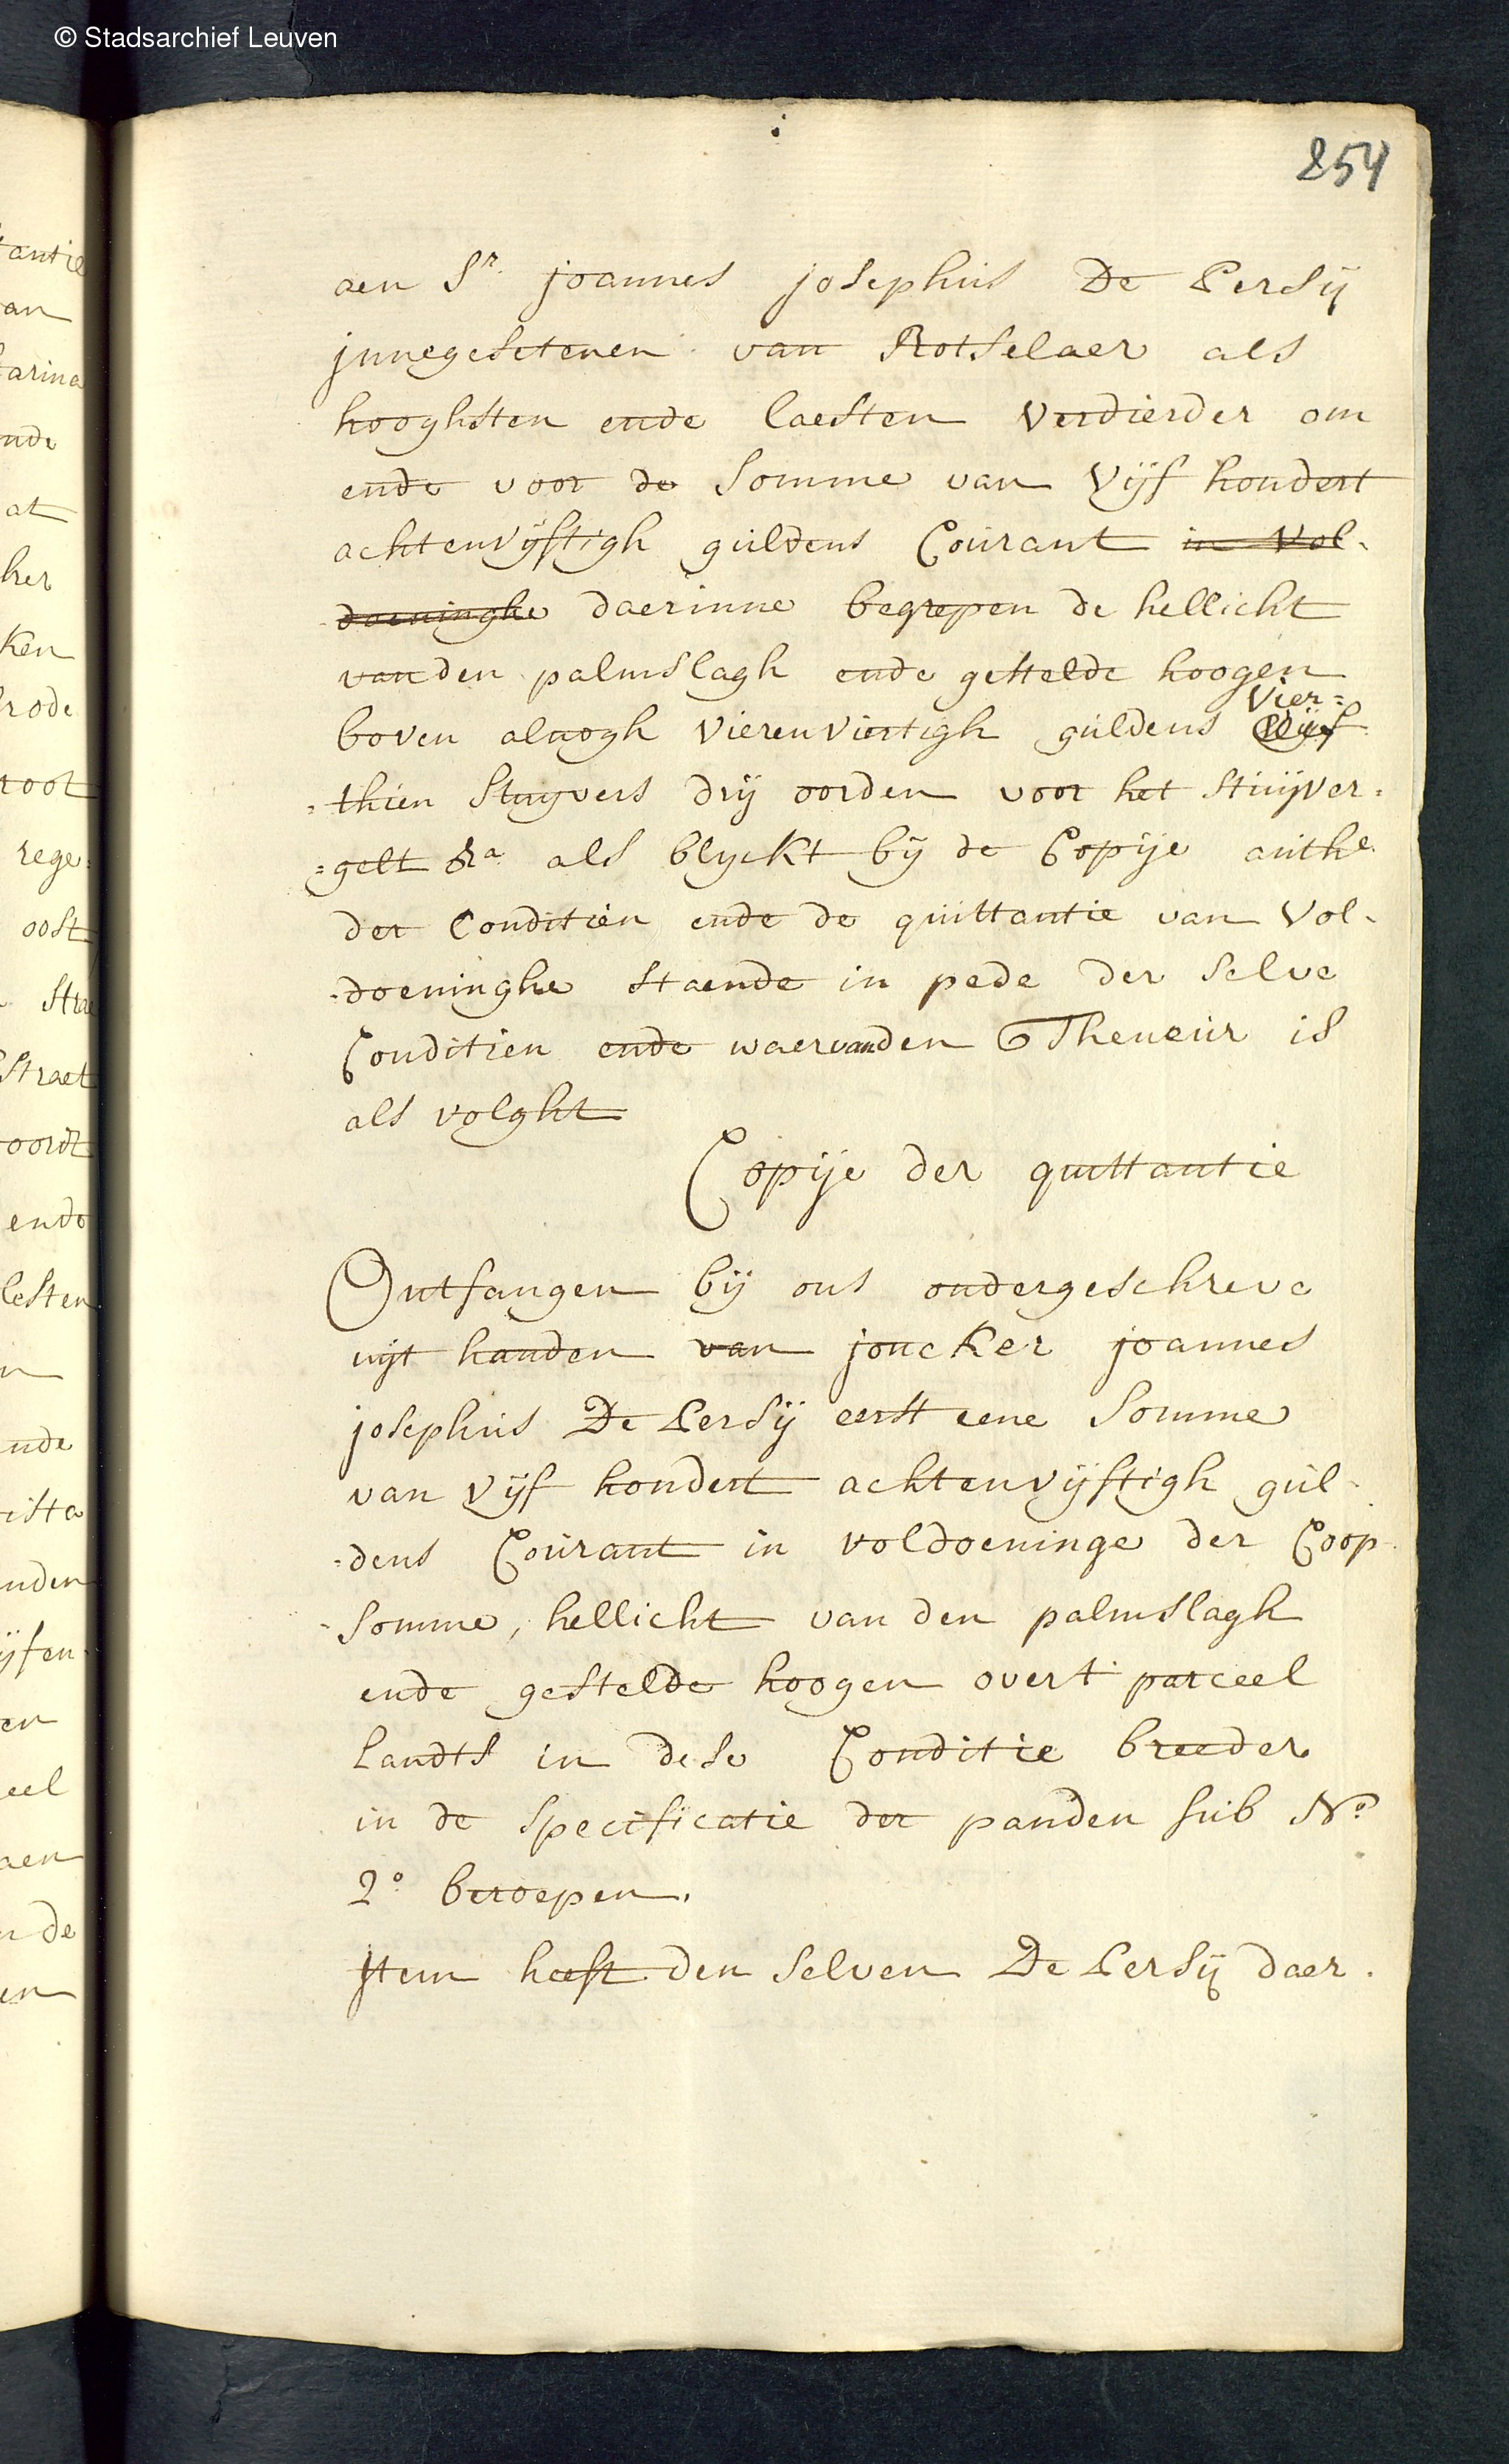 © Stadsarchief Leuven
254
aen Sr. joannes josephus De Persij
jnnegesetenen van Rotselaer als
hooghsten ende laesten Verdierder om
ende voor de somme van Vijf hondert
achtenvijftigh guldens Courant in Vol-
doeninghe daerinne begrepen de hellicht
vanden palmslagh ende gestelde hoogen
Vier=
boven alnogh vierenviertigh guldens
=thien Stuyvers drij oorden voor het stuijver=
=gelt &a als blyckt bij de Copije authe.
der Conditien ende de quittantie van Vol-
-doeninghe staende in pede der selve
Conditien ende waervanden Theneur is
als volght
Copije der quittantie
Ontfangen bij ons ondergeschreve
uijt handen van joncker joannes
josephus De Persij eerst eene somme
van Vijf hondert achtenvijftigh gul-
-dens Courant in voldoeninge der Coop-
-somme, hellicht van den palmslagh
ende gestelde hoogen overt parceel
landts in dese Conditie breeder
in de specificatie der panden sub No.
2o. beroepen.
Jtem heeft den selven De Persij daer.
antie
an
arina
nde
at
her
ken
rode
root
rege=
oost
strae
straet
oordt
ende
lesten
n
nde
ista
nden
ijfen-
en
eel
aen
de
en